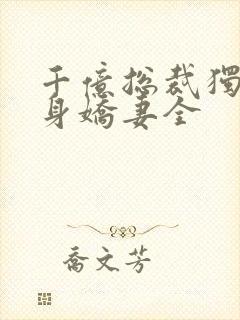 千億總裁獨
身嬌妻全
喬文芳